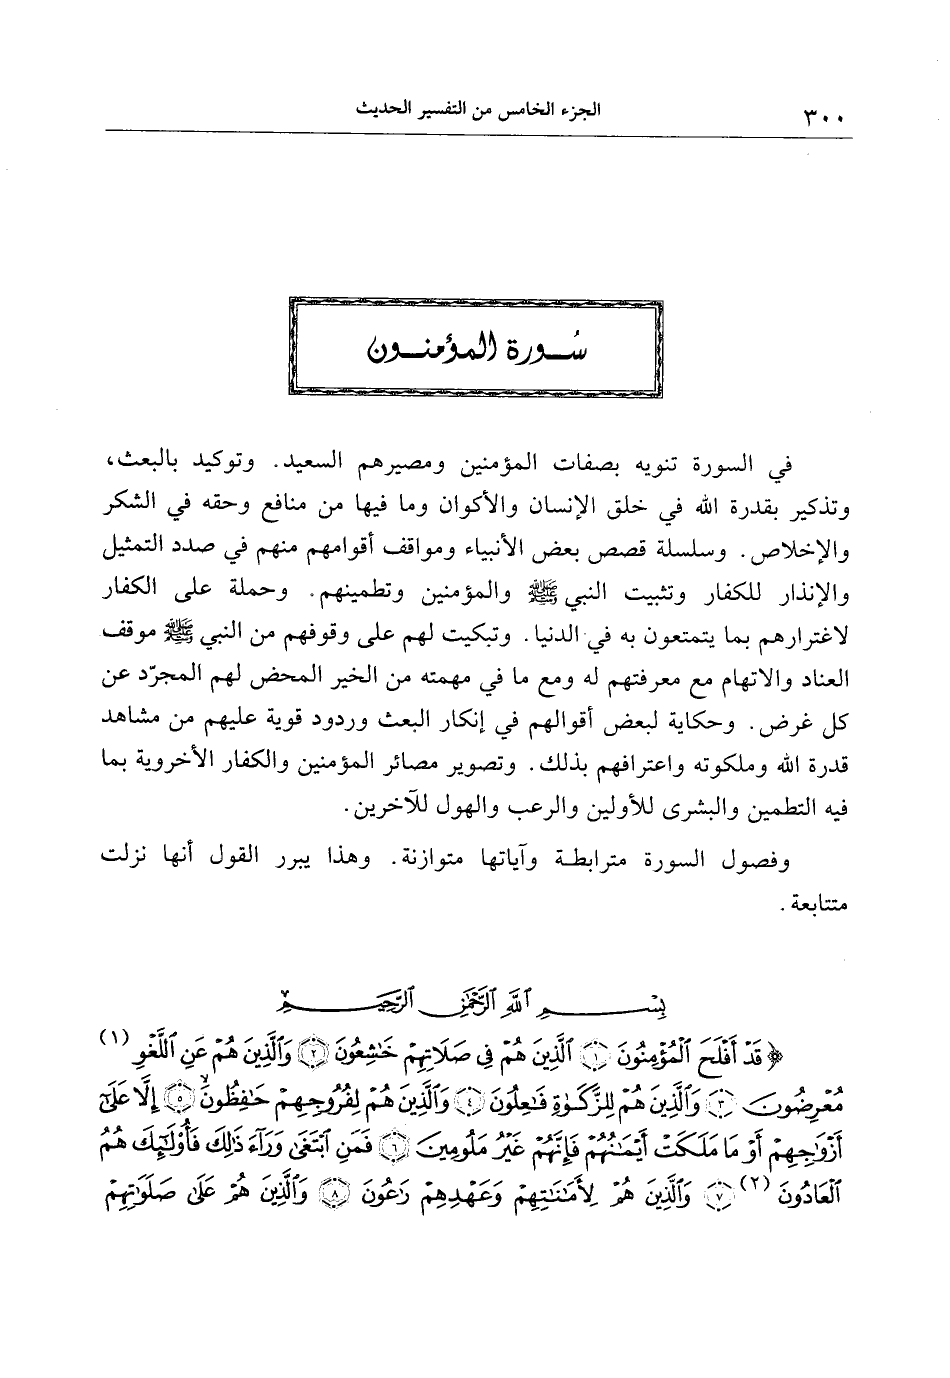 ٣٠٠ الجزء الخامس من التفسير الحديث
سُورة المؤمنون
في السورة تنويه بصفات المؤمنين ومصيرهم السعيد. وتوكيد بالبعث،
وتذكير بقدرة الله في خلق الإنسان والأكوان وما فيها من منافع وحقه في الشكر
والإخلاص. وسلسلة قصص بعض الأنبياء ومواقف أقوامهم منهم في صدد التمثيل
والإنذار للكفار وتثبيت النبي ﷺ والمؤمنين وتطمينهم. وحملة على الكفار
لاغترارهم بما يتمتعون به في الدنيا. وتبكيت لهم على وقوفهم من النبي ﷺ موقف
العناد والاتهام مع معرفتهم له ومع ما في مهمته من الخير المحض لهم المجرّد عن
كل غرض. وحكاية لبعض أقوالهم في إنكار البعث وردود قوية عليهم من مشاهد
قدرة الله وملكوته واعترافهم بذلك. وتصوير مصائر المؤمنين والكفار الأخروية بما
فيه التطمين والبشرى للأولين والرعب والهول للآخرين.
وفصول السورة مترابطة وآياتها متوازنة. وهذا يبرر القول أنها نزلت
متتابعة.
بِسْمِ ٱللَّهِ ٱلرَّحْمَٰنِ ٱلرَّحِيمِ
﴿ قَدْ أَفْلَحَ ٱلْمُؤْمِنُونَ ۝١ ٱلَّذِينَ هُمْ فِى صَلَاتِهِمْ خَٰشِعُونَ ۝٢ وَٱلَّذِينَ هُمْ عَنِ ٱللَّغْوِ (١)
مُعْرِضُونَ ۝٣ وَٱلَّذِينَ هُمْ لِلزَّكَوٰةِ فَٰعِلُونَ ۝٤ وَٱلَّذِينَ هُمْ لِفُرُوجِهِمْ حَٰفِظُونَ ۝٥ إِلَّا عَلَىٰٓ
أَزْوَٰجِهِمْ أَوْ مَا مَلَكَتْ أَيْمَٰنُهُمْ فَإِنَّهُمْ غَيْرُ مَلُومِينَ ۝٦ فَمَنِ ٱبْتَغَىٰ وَرَآءَ ذَٰلِكَ فَأُو۟لَٰٓئِكَ هُمُ
ٱلْعَادُونَ (٢) ۝٧ وَٱلَّذِينَ هُمْ لِأَمَٰنَٰتِهِمْ وَعَهْدِهِمْ رَٰعُونَ ۝٨ وَٱلَّذِينَ هُمْ عَلَىٰ صَلَوَٰتِهِمْ